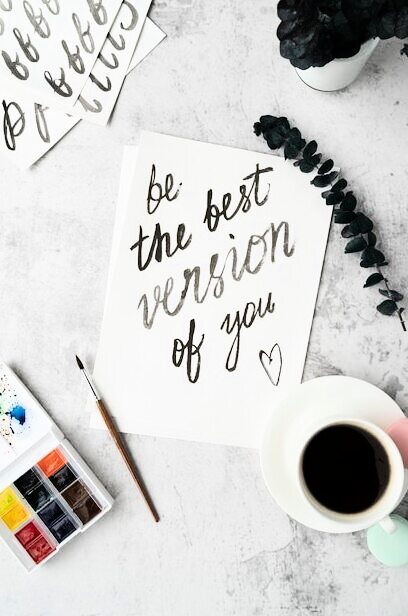 be
the best
version
of you